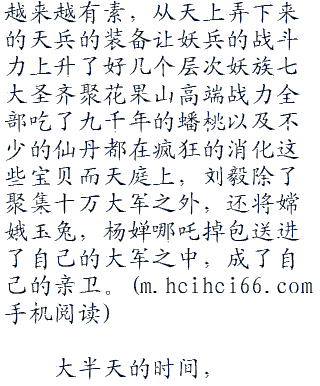 越来越有素，从天上弄下来
的天兵的装备让妖兵的战斗
力上升了好几个层次妖族七
大圣齐聚花果山高端战力全
部吃了九千年的蟠桃以及不
少的仙丹都在疯狂的消化这
些宝贝而天庭上，刘毅除了
聚集十万大军之外，还将嫦
娥玉兔，杨婵哪吒掉包送进
了自己的大军之中，成了自
己的亲卫。(m.hcihci66.com
手机阅读)
大半天的时间，